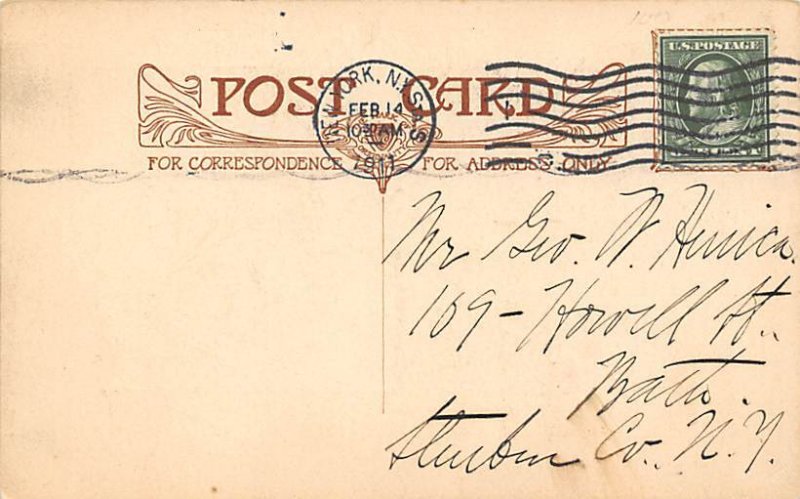 POST CARD
NEW YORK, N.Y. STA.
FEB 14
10 30 AM
1911
U.S. POSTAGE
FOR CORRESPONDENCE FOR ADDRESS ONLY
Mr Geo. W.
109 - Howell St.,
Bath.
Steuben Co. N.Y.